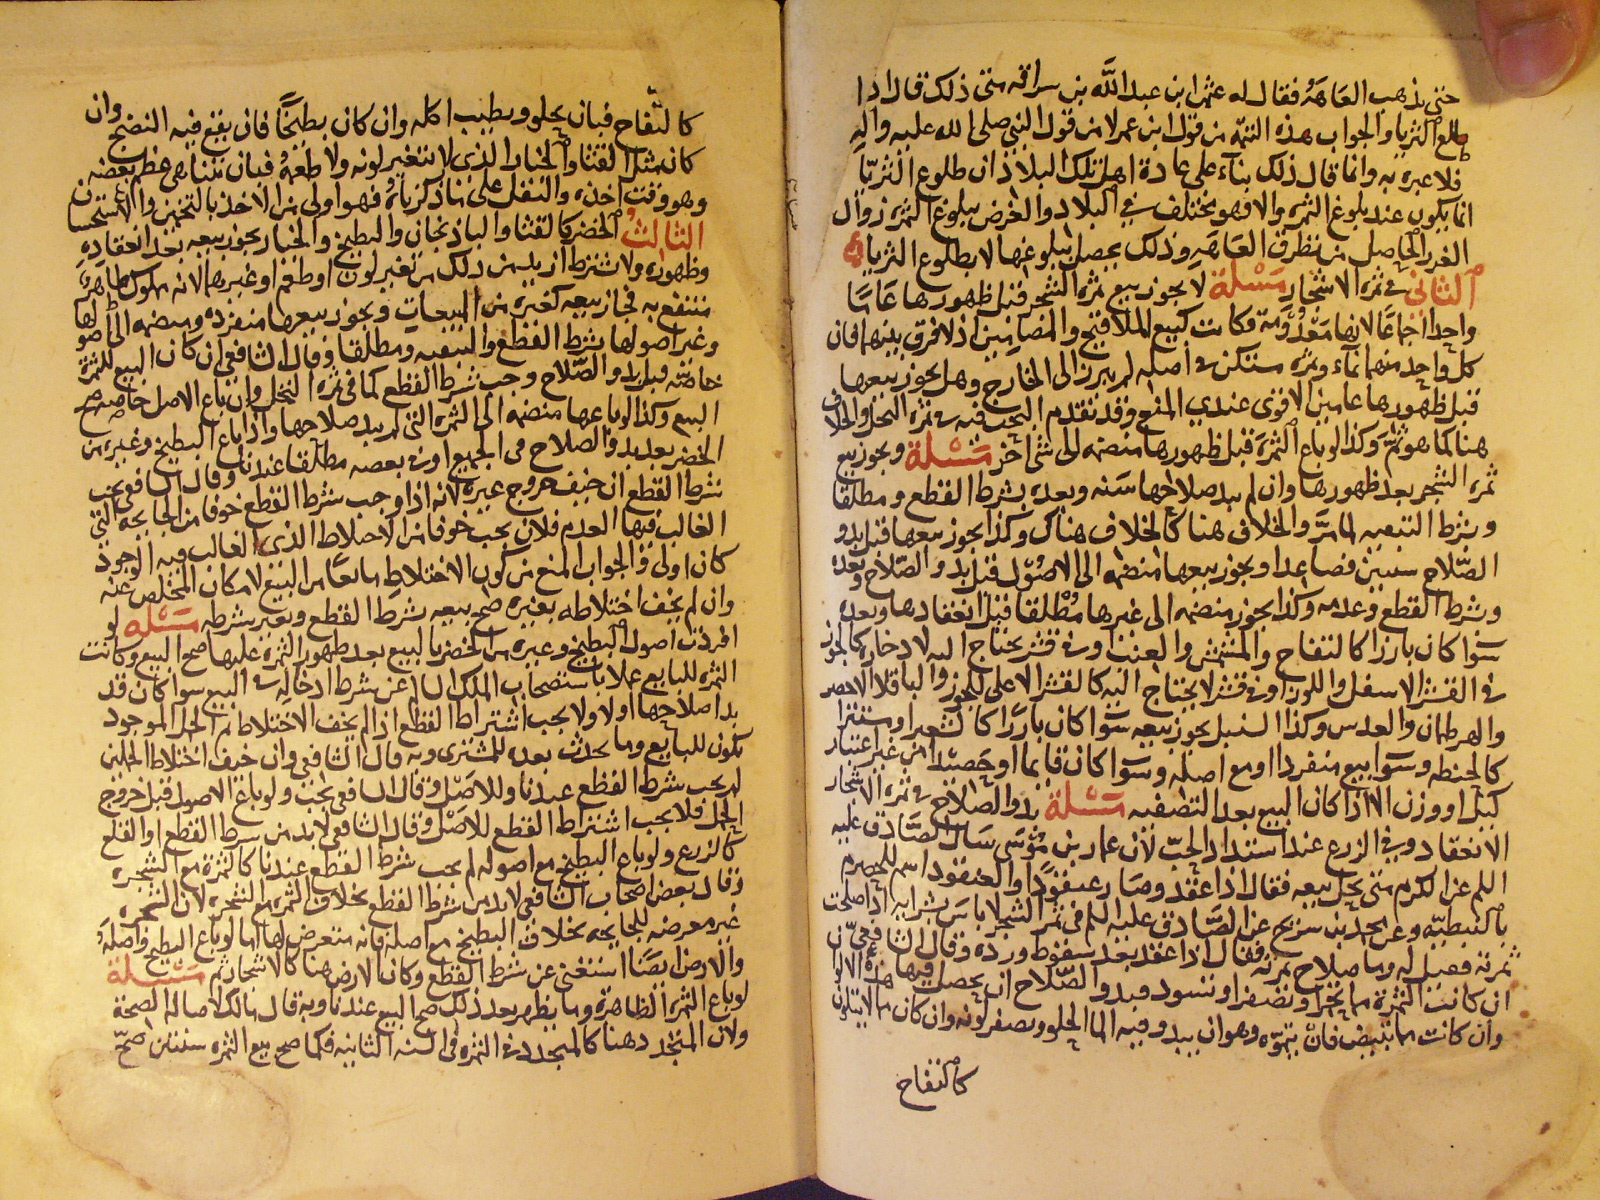 حتى يذهب العاهة فقال له عثمان بن عبد الله بن سراقه متى ذلك قال اذا
طلع الثريا والجواب هذه التتمة من قول ابن عمر لا من قول النبي صلى الله عليه واله
فلا عبره به وانما قال ذلك بناء على عادة اهل تلك البلاد اذ ان طلوع الثريا
انما يكون عند بلوغ الثمره والا فهو يختلف في البلاد والغرض ببلوغ الثمره زوال
الغرر الحاصل من تطرق العاهه وذلك يحصل ببلوغها لا بطلوع الثريا
الثاني في ثمره الاشجار مسئلة لا يجوز بيع ثمره الشجر قبل ظهورها عاما
واحدا اجماعا لانها معدومة فكانت كبيع الملاقيح والمضامين اذ لا فرق بينهما فان
كل واحد منهما نماء وثمره مستكن في اصله لم يبرز الى الخارج وهل يجوز بيعها
قبل ظهورها عامين الاقوى عندي المنع وقد تقدم البحث فيه في ثمرة النخل والخلاف
هنا كما هو ثم وكذا لو باع الثمرة قبل ظهورها منضمه الى شئ اخر مسئلة ويجوز بيع
ثمره الشجر بعد ظهورها وان لم يبد صلاحها سنه وبعده بشرط القطع ومطلقا
وشرط التبقيه لما مر والخلاف هنا كالخلاف هناك وكذا يجوز بيعها قبل بدو
الصلاح سنين فصاعدا ويجوز بيعها منضمه الى الاصول قبل بدو الصلاح وبعده
وشرط القطع وعدمه وكذا يجوز منضمه الى غيرها مطلقا قبل انعقادها وبعده
سوا كان بارزا كالتفاح والمشمش والعنب او في قشر يحتاج اليه لادخاره كالجوز
في القشر الاسفل واللوز او في قشر لا يحتاج اليه كالقشر الاعلى للجوز والباقلا الاخضر
والهرطمان والعدس وكذا السنبل يجوز بيعه سوا كان بارزا كالشعير او مستترا
كالحنطه وسوا بيع منفردا او مع اصله وسوا كان قايما او حصيدا من غير اعتبار
كيل او وزن الا اذا كان البيع بعد التصفيه مسئلة بدو الصلاح في ثمره الاشجار
الانعقاد وفي الزرع عند اشتداد الحب لان عمار بن موسى سال الصادق عليه
السلم عن الكرم متى يحل بيعه فقال اذا عقد وصار عنقودا والعنقود اسم للحصرم
بالنبطيه وعن محمد بن شريح عن الصادق عليه السلم في ثمر الشجر لا باس بشرايه اذا صلحت
ثمرته فقيل له وما صلاح ثمرته فقال اذا عقد بعد سقوط ورده وقال الشافعي
ان كانت الثمرة مما يحمر او يصفر او يسود فبدو الصلاح ان يحصل فيها هذه الالوان
وان كانت مما يبيض فان يتموه وهو ان يبدو فيه الما الحلو ويصفر لونه وان كان مما لا يتلون
كالتفاح
كالتفاح فبان يحلو ويطيب اكله وان كان بطيخا فان يقع فيه النضج وان
كان مثل القثا والخيار الذي لا يتغير لونه ولا طعمه فبان يتناهى عظم بعضه
وهو وقت اخذه والنقل على ما ذكرناه فهو اولى من الاخذ بالتخمين والاستحسان
الثالث الخضر كالقثا والباذنجان والبطيخ والخيار يجوز بيعه بعد انعقاده
وظهوره ولا يشترط ازيد من ذلك من تغير لون او طعم او غيرهما لانه مملوك طاهر
منتفع به فجاز بيعه كغيره من المبيعات ويجوز بيعها منفرده ومنضمه الى اصولها
وغير اصولها بشرط القطع والتبقيه ومطلقا وقال الشافعي ان كان البيع للثمرة
خاصة قبل بدو الصلاح وجب شرط القطع كما في ثمره النخل وان باع الاصل خاصه صح
البيع وكذا لو باعها منضمه الى الثمره التي لم يبد صلاحها واذا باع البطيخ وغيره من
الخضر بعد بدو الصلاح في الجميع او في بعضه مطلقا عندنا وقال الشافعي يجب
شرط القطع ان خيف خروج غيره لانه اذا وجب شرط القطع خوفا من الجايحه التي
الغالب فيها العدم فلان يجب خوفا من الاختلاط الذي الغالب فيه الوجود
كان اولى والجواب المنع من كون الاختلاط مانعا من البيع لامكان التخلص عنه
وان لم يخف اختلاطه بغيره صح بيعه بشرط القطع وبغير شرطه مسئله لو
افردت اصول البطيخ وغيره من الخضر بالبيع بعد ظهور الثمرة عليها صح البيع وكانت
الثمره للبايع عملا باستصحاب الملك السالم عن شرط ادخاله في البيع سوا كان قد
بدا صلاحها او لا ولا يجب اشتراط القطع اذا لم يخف الاختلاط ثم الحمل الموجود
يكون للبايع وما يحدث بعده للمشتري وبه قال الشافعي وان خيف اختلاط الحملين
لم يجب شرط القطع عندنا وللاصل وقال الشافعي يجب ولو باع الاصول قبل خروج
الحمل فلا يجب اشتراط القطع للاصل وقال الشافعي لابد من شرط القطع او القلع
كالزرع ولو باع البطيخ مع اصوله لم يجب شرط القطع عندنا كالثمرة مع الشجرة
وقال بعض اصحاب الشافعي لابد من شرط القطع بخلاف الثمره مع الشجره لان الشجره
غير معرضه للجايحه بخلاف البطيخ مع اصله فانه متعرض لها اما لو باع البطيخ واصله
والارض ايضا استغنى عن شرط القطع وكان الارض هنا كالاشجار ثم مسئلة
لو باع الثمره الظاهرة وما يظهر بعد ذلك صح البيع عندنا وبه قال مالك لاصاله الصحة
ولان المتجدد هنا كالمتجدد في الثمره في السنه الثانيه فكما صح بيع الثمره سنتين صح